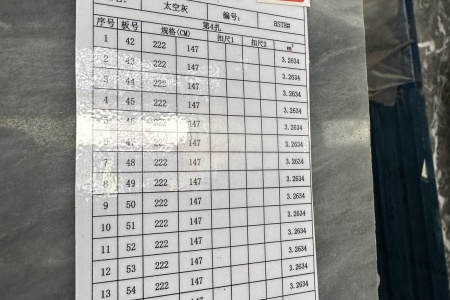 太空灰 编号:
序号 板号 规格(CM) 第4扎 扣尺1 扣尺2 m²
1 42 222 147 3.2634
2 43 222 147 3.2634
3 44 222 147 3.2634
4 45 222 147 3.2634
46 222 147 3.2634
47 222 147 3.2634
7 48 222 147 3.2634
8 49 222 147 3.2634
9 50 222 147 3.2634
10 51 222 147 3.2634
11 52 222 147 3.2634
12 53 222 147 3.2634
13 54 222 147 3.2634